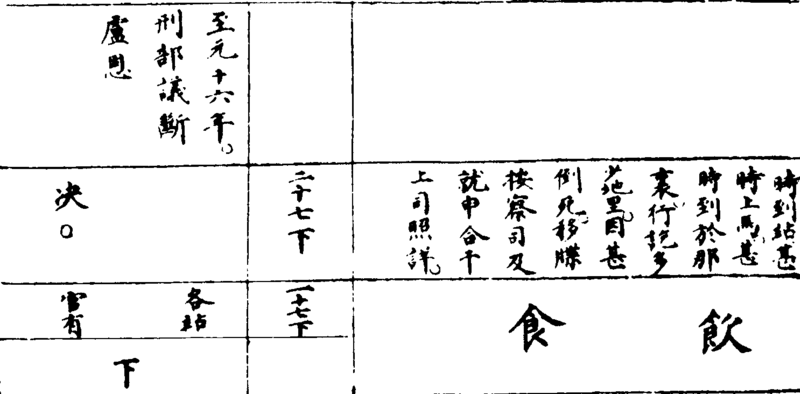 至元十六年。
刑部議斷
盧恩
時到站甚
時上馬甚
時到於那
裏行說多
少地里因甚
倒死移牒
按察司及
就申合干
上司照詳。
二十七下
决。
飲
食
一十七下
各站
官有
下